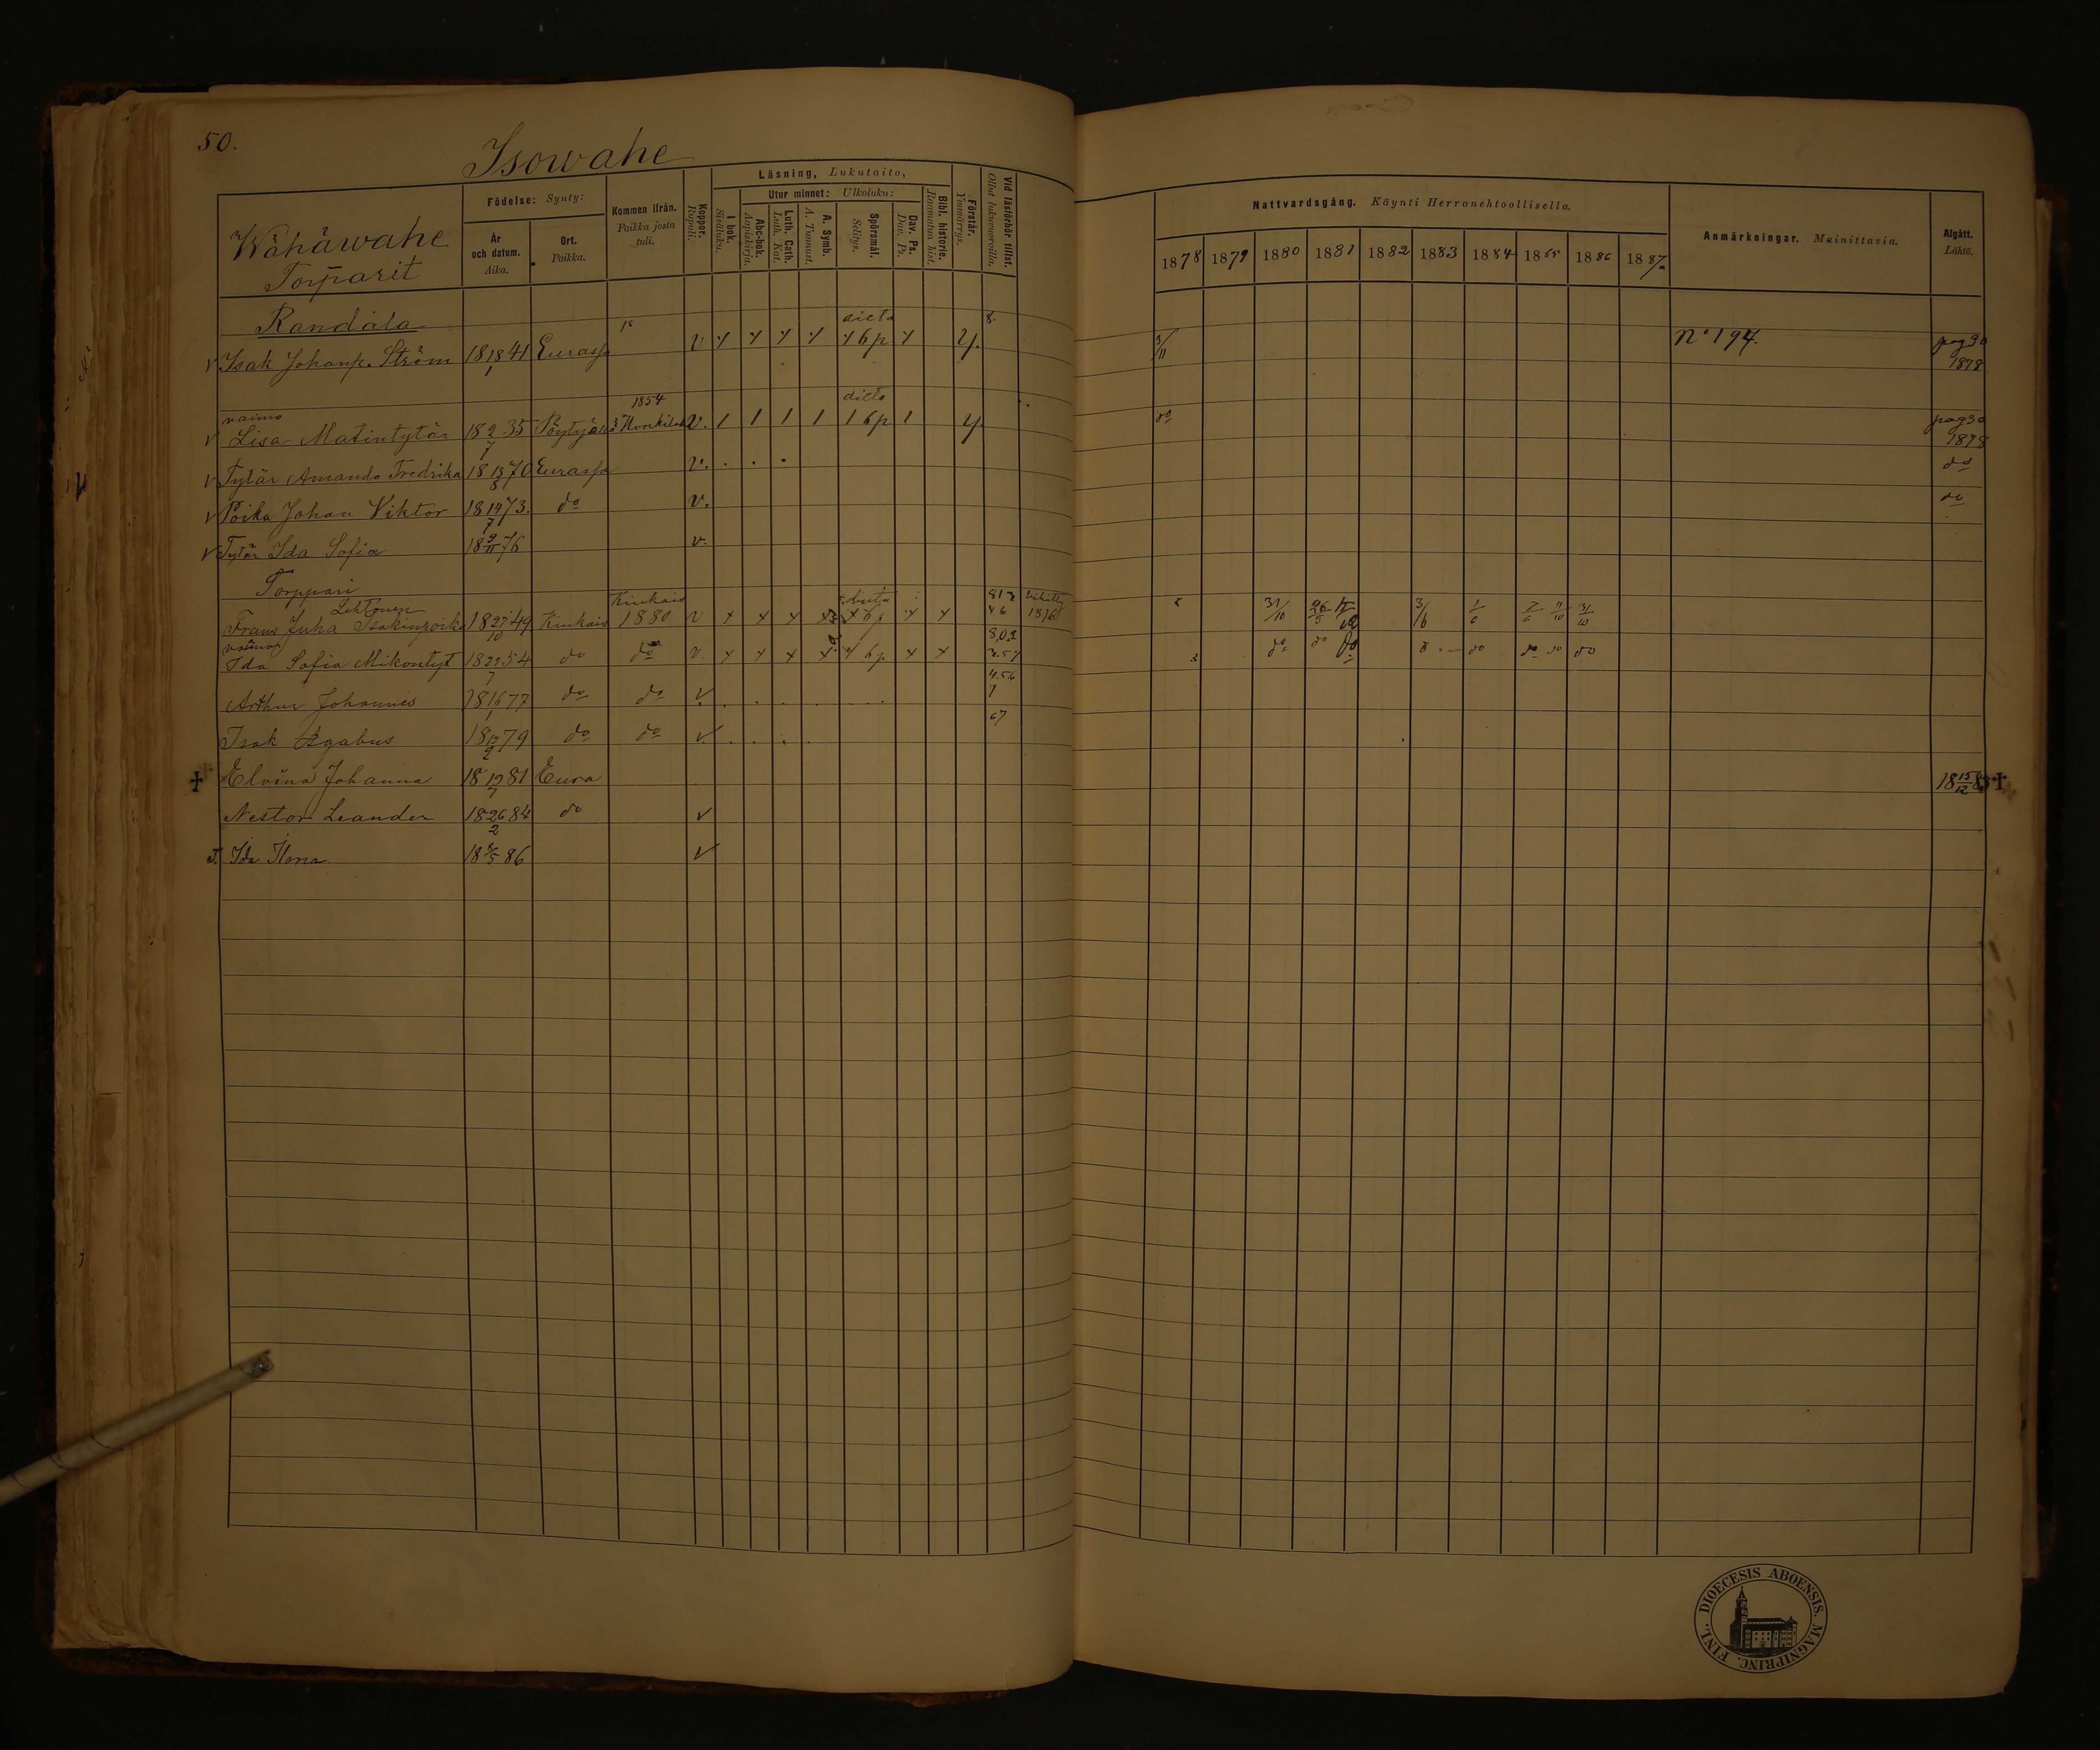 50.
Isowahe
Wähäwahe
Torparit
Födelse: Synty:
År och datum. Aika.
Ort. Paikka.
Kommen ifrån. Paikka josta tuli.
Koppor. Rupuli.
Läsning, Lukutaito,
I bok. Sisäluku.
Utur minnet: Ulkoluku:
Abc-bok. Aapiskirja.
Luth. Cath. Luth. Kat.
A. Symb. A. Tunnust.
Spörsmål. Selitys.
Dav. Ps. Dav. Ps.
Bibl. historie. Raamatun hist.
Förstår. Ymmärrys.
Vid läsförhör tillåt. Ollut lukuvuoroilla.
Nattvardsgång. Käynti Herranehtoollisella.
1878 1879 1880 1881 1882 1883 1884 1885 1886 1887
Anmärkningar. Muinittavia.
Afgått. Lähtö.
Randala
v Isak Johanp. Ström 18 18/1 41 Eurassa v 6p y. 3/11 No 194. pag 30 1878
vaimo
v Lisa Matintytär 18 2/7 35 Pöytyällä 1854 v. 1 1 1 1 1 6p 1 y. do pag 30 1878
v Tytär Amanda Fredrika 18 13/8 70 Eurassa v. do
v Poika Johan Viktor 18 14/7 73. do v. do
v Tytär Ida Sofia 18 9/11 76 v.
Torppari
Lehtonen
Frans Juha Isakinpoika 18 27/10 49 Kiukais Kiukais 1880 v x x x x 6p x x 46 31/10 3/6 1/6 7/6 11/10 31/10
vaimo
Ida Sofia Mikontyt 18 29/7 54 do do v. x x x x 6p x x 3.57 do do do do do do do
Arthur Johannes 18 16/1 77 do do v
Isak Agabus 18 12/2 79 do do v
† Elvina Johanna 18 19/7 81 Eura 18 15/12 83 †
Nestor Leander 18 26/2 84 do v
T. Ida Ilona 86 v
FINL. DIOECESIS ABOENSIS. MAGNIPRINC.